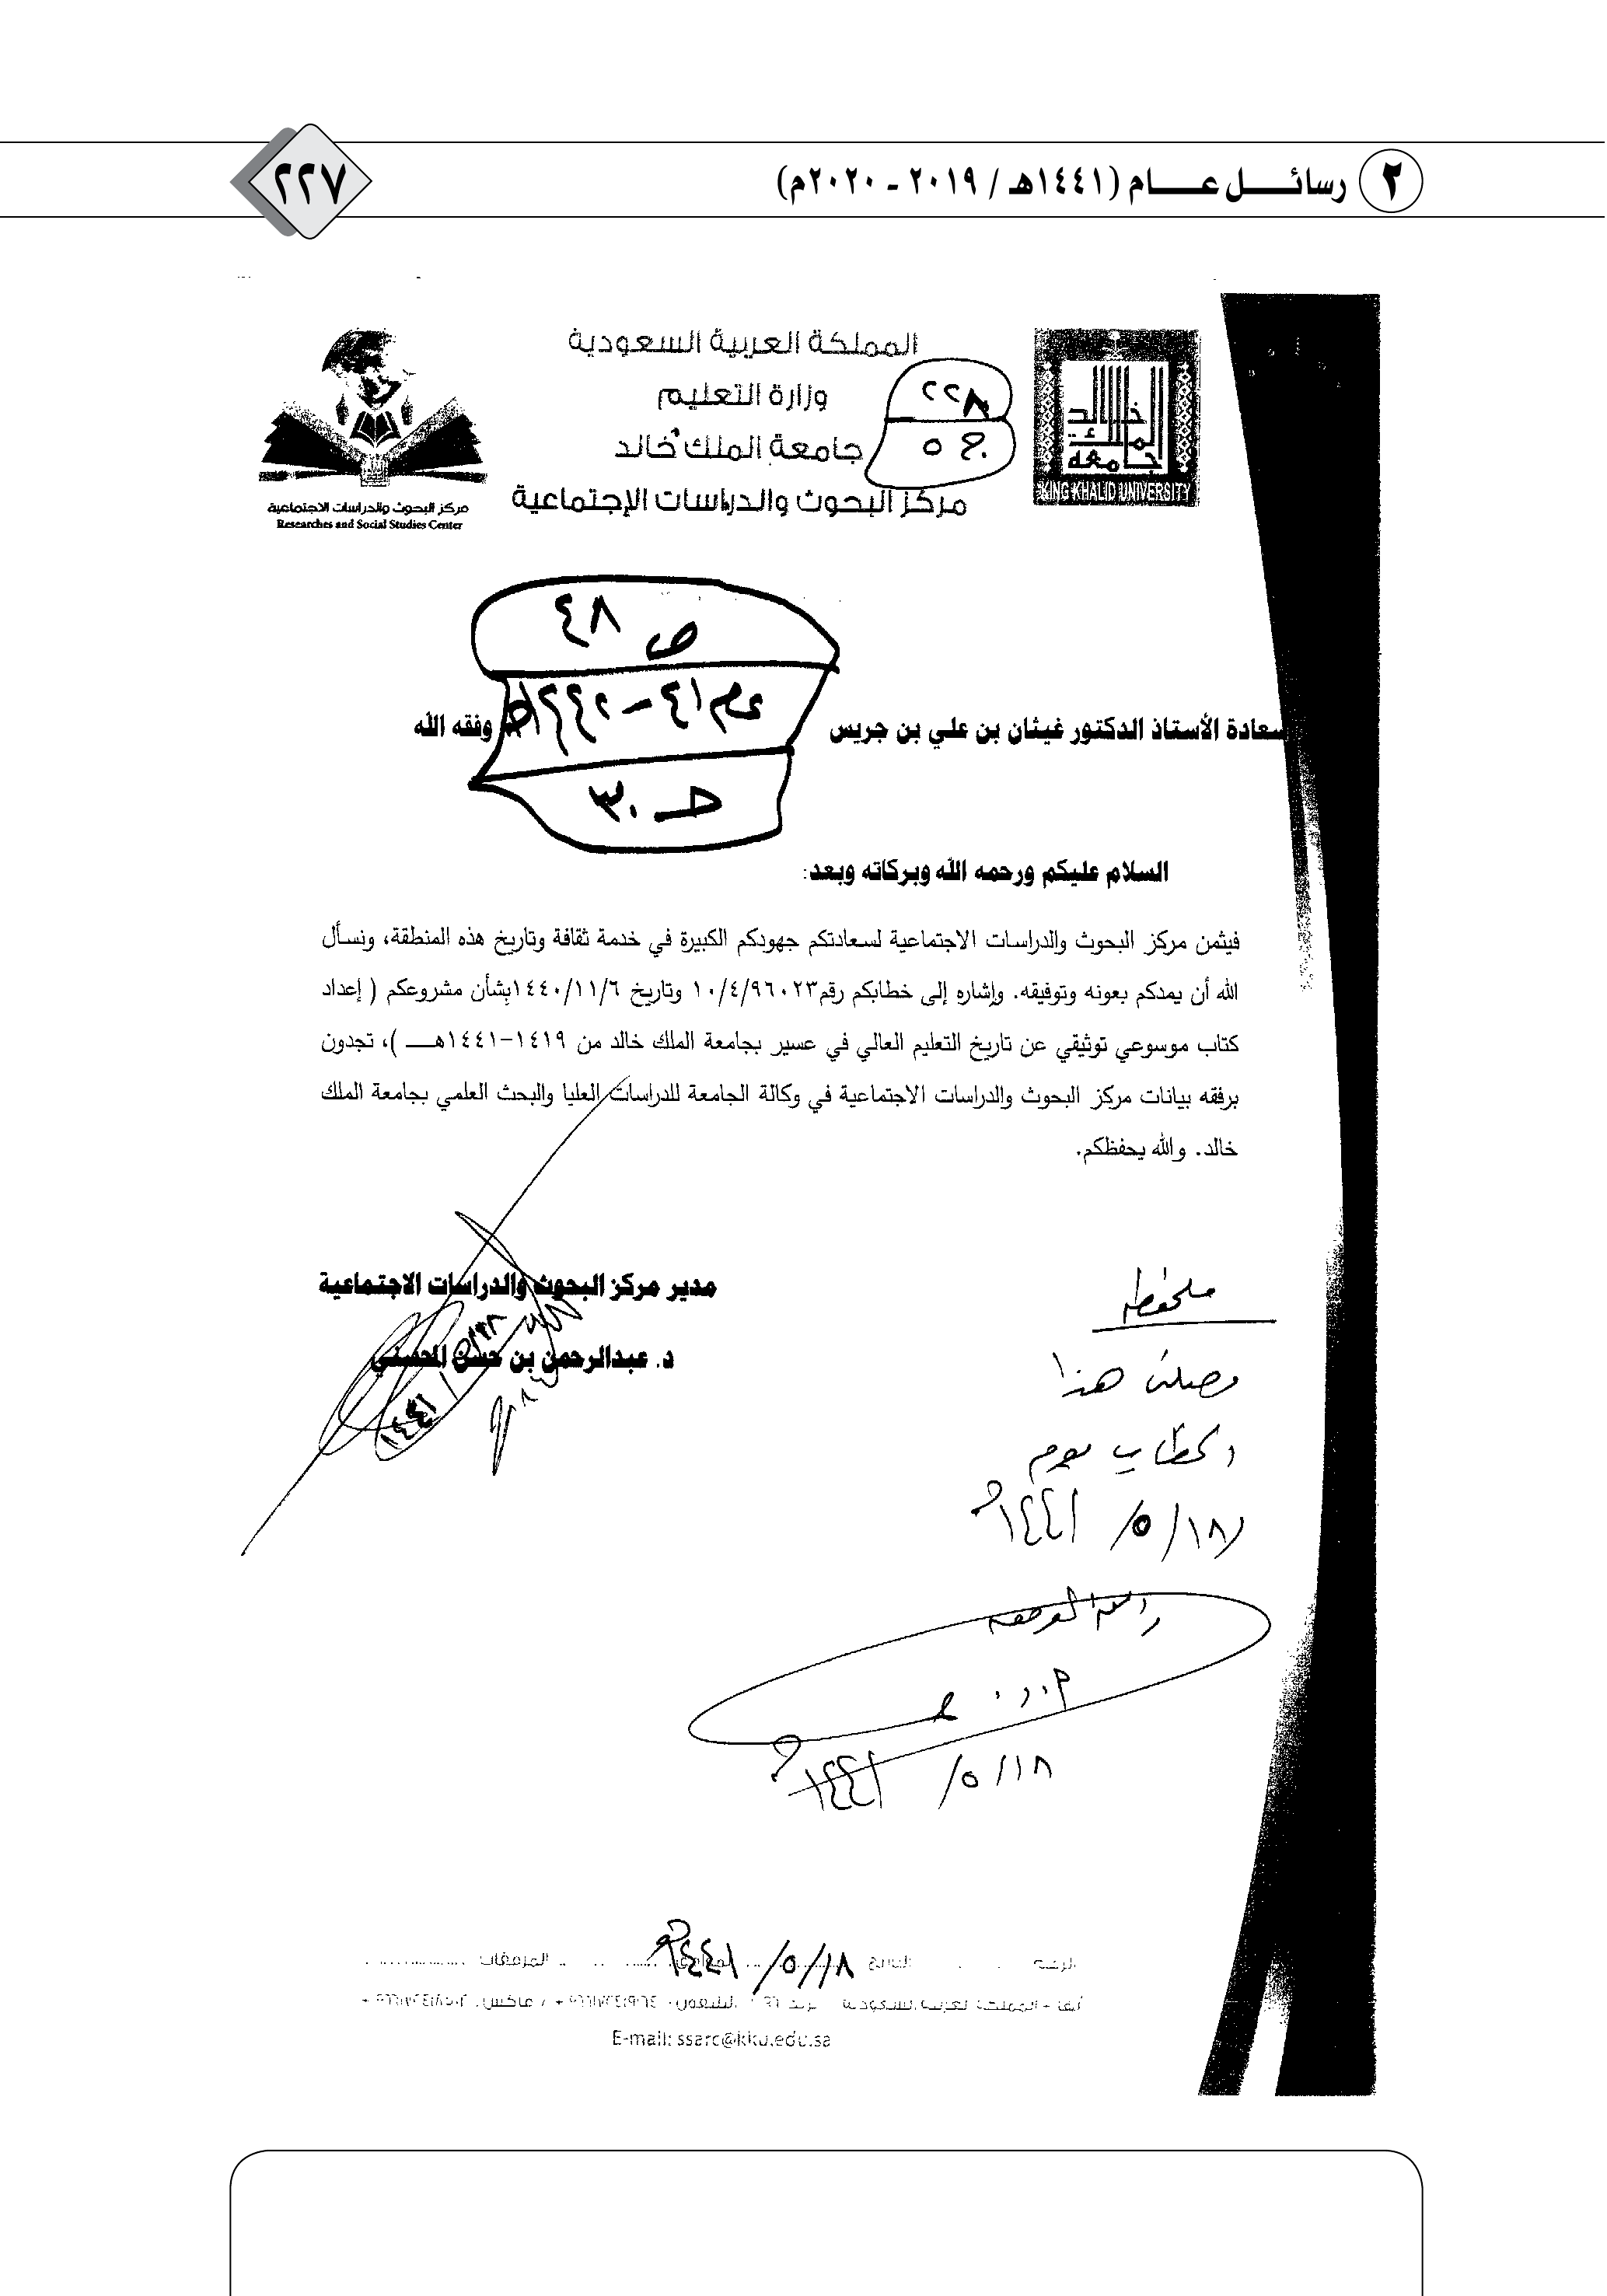 ٢ رسائل عام (١٤٤١هـ / ٢٠١٩ - ٢٠٢٠م)
٢٢٧
المملكة العربية السعودية
وزارة التعليم
جامعة الملك خالد
مركز البحوث والدراسات الإجتماعية
٢٢٨
ج ٥
جامعة الملك خالد
KING KHALID UNIVERSITY
مركز البحوث والدراسات الاجتماعية
Researches and Social Studies Center
ص ٤٨
عام ٤١ - ١٤٤٢هـ
ج ٣
سعادة الأستاذ الدكتور غيثان بن علي بن جريس وفقه الله
السلام عليكم ورحمه الله وبركاته وبعد:
فيثمن مركز البحوث والدراسات الاجتماعية لسعادتكم جهودكم الكبيرة في خدمة ثقافة وتاريخ هذه المنطقة، ونسأل
الله أن يمدكم بعونه وتوفيقه. وإشاره إلى خطابكم رقم١٠/٤/٩٦٠٢٣ وتاريخ ١٤٤٠/١١/٦بشأن مشروعكم ( إعداد
كتاب موسوعي توثيقي عن تاريخ التعليم العالي في عسير بجامعة الملك خالد من ١٤١٩-١٤٤١هـ )، تجدون
برفقه بيانات مركز البحوث والدراسات الاجتماعية في وكالة الجامعة للدراسات العليا والبحث العلمي بجامعة الملك
خالد. والله يحفظكم.
مدير مركز البحوث والدراسات الاجتماعية
د. عبدالرحمن بن حسن المحسني
١٤٤١
ملحوظة
وصلني هذا
الخطاب يوم
١٨/ ٥/ ١٤٤١هـ
١٨/ ٥/ ١٤٤١هـ
١٨/ ٥/ ١٤٤١هـ
E-mail: ssarc@kku.edu.sa